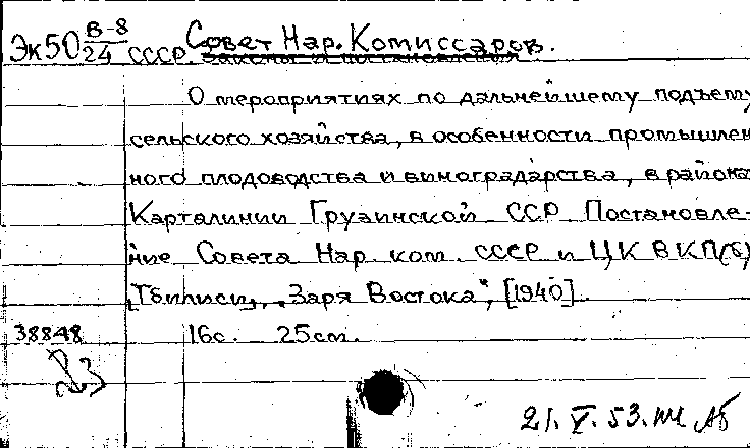 Эк50 В-8/24 СССР. Совет Нар. Комиссаров.
О мероприятиях по дальнейшему подъему
сельского хозяйства, в особенности промышлен
ного плодоводства и виноградарства, в района
Карталинии Грузинской ССР Постановле-
ние Совета Нар. ком. СССР и ЦК ВКП(б)
[Тбилиси], "Заря Востока", [1940].
38848 16с. 25см.
21. V. 53.